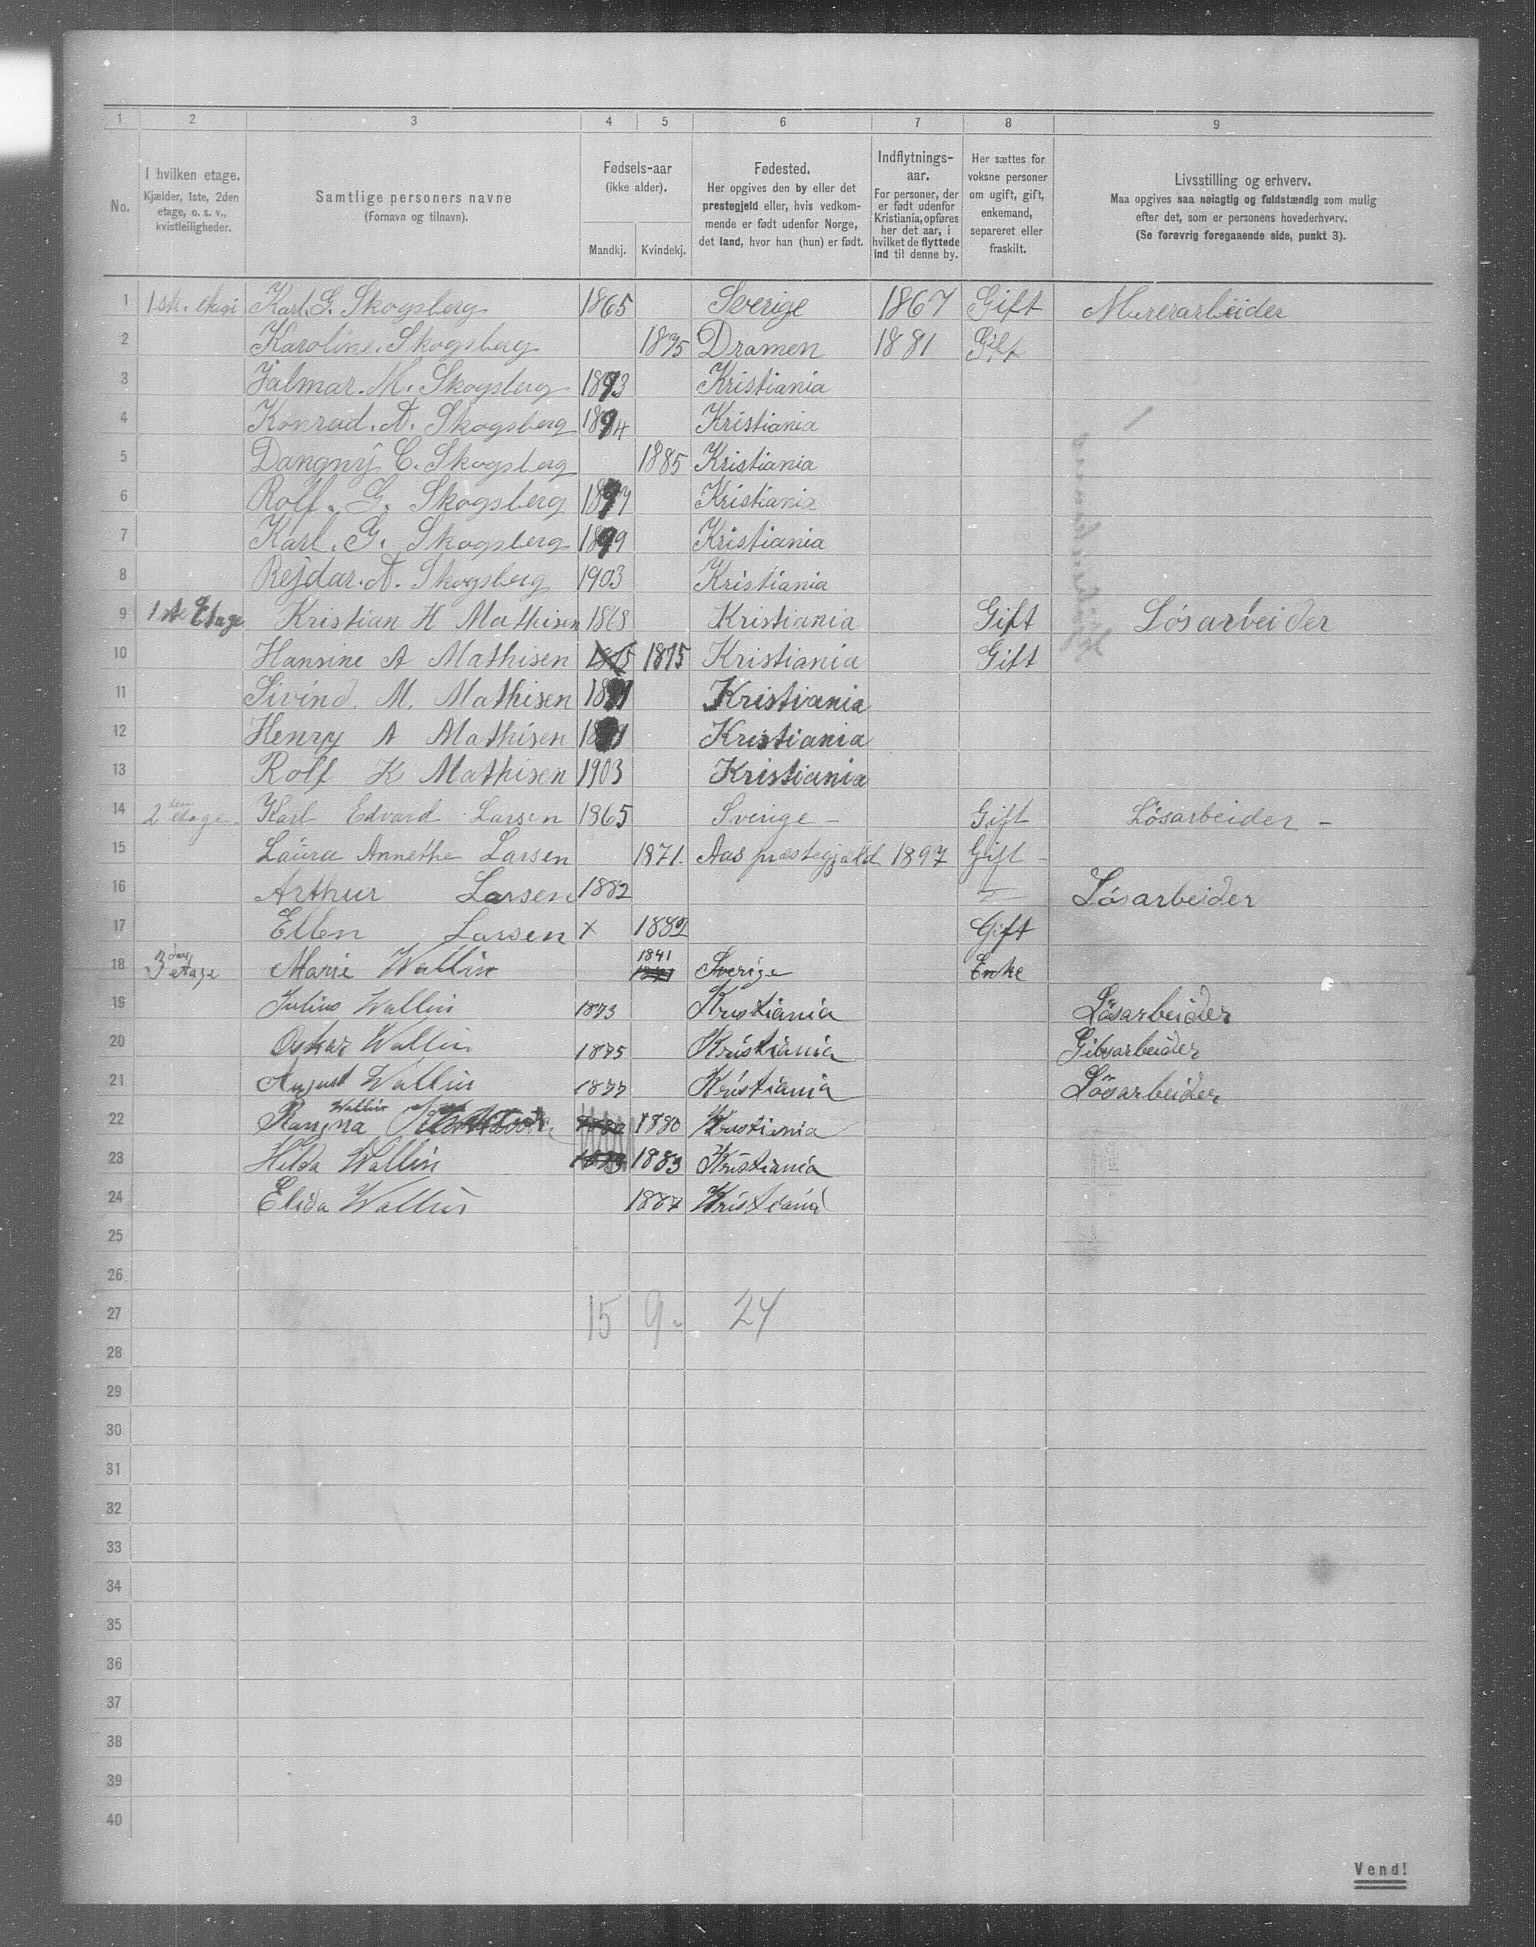 1 2 3 4 5 6 7 8 9
No.
I hvilken etage.
Kjælder, 1ste, 2den
etage, o. s. v.,
kvistleiligheder.
Samtlige personers navne
(Fornavn og tilnavn).
Fødsels-aar
(ikke alder).
Mandkj. Kvindekj.
Fødested.
Her opgives den by eller det
prestegjeld eller, hvis vedkom-
mende er født udenfor Norge,
det land, hvor han (hun) er født.
Indflytnings-
aar.
For personer, der
er født udenfor
Kristiania, opføres
her det aar, i
hvilket de flyttede
ind til denne by.
Her sættes for
voksne personer
om ugift, gift,
enkemand,
separeret eller
fraskilt.
Livsstilling og erhverv.
Maa opgives saa nøiagtig og fuldstændig som mulig
efter det, som er personens hovederhverv.
(Se forøvrig foregaaende side, punkt 3).
1 Karl. G. Skogsberg 1865 Sverige 1867 Gift Murerarbeider
2 Karoline. Skogsberg 1875 Dramen 1881 Gift
3 Jalmar. M. Skogsberg 1893 Kristiania
4 Konrad. A. Skogsberg 1894 Kristiania
5 Dangny C. Skogsberg 1885 Kristiania
6 Rolf. G. Skogsberg 1897 Kristiania
7 Karl. G. Skogsberg 1899 Kristiania
8 Rejdar. A. Skogsberg 1903 Kristiania
9 1ste Etage Kristian H Mathisen 1868 Kristiania Gift Lösarbeider
10 Hansine A Mathisen 1875 1875 Kristiania Gift
11 Sivind. M. Mathisen Kristiania
12 Henry A Mathisen Kristiania
13 Rolf K Mathisen 1903 Kristiania
14 2den etage. Karl Edvard Larsen 1865 Sverige - Gift Lösarbeider -
15 Laura Annethe Larsen 1871. Aas præstegjæld 1897 Gift -
16 Arthur Larsen 1882 Lösarbeider
17 Ellen Larsen x 1882 Gift
18 3die etage Marie Wallin 1841 Sverige Enke
19 Julius Wallin 1873 Kristiania Lösarbeider
20 Oskar Wallin 1875 Kristiania Gibsarbeider
21 August Wallin 1877 Kristiania Lösarbeider
22 Rangna Wallin 1880 1880 Kristiania
23 Hilda Wallin 1883 1883 Kristiania
24 Elida Wallin 1887 Kristiania
25
26
27 15 9. 24
28
29
30
31
32
33
34
35
36
37
38
39
40
Vend!